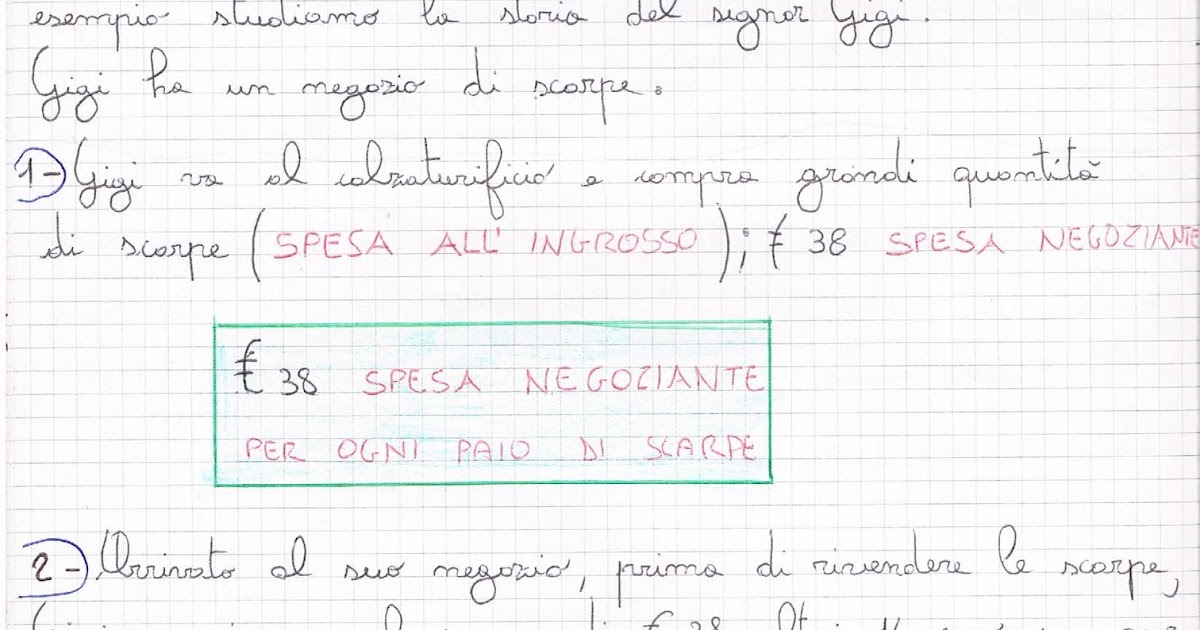 esempio studiamo la storia del signor Gigi.
Gigi ha un negozio di scarpe.
1- Gigi va al calzaturificio e compra grandi quantità
di scarpe (SPESA ALL'INGROSSO); € 38 SPESA NEGOZIANTE
€ 38 SPESA NEGOZIANTE
PER OGNI PAIO DI SCARPE
2- Arrivato al suo negozio, prima di rivendere le scarpe,
€ 38